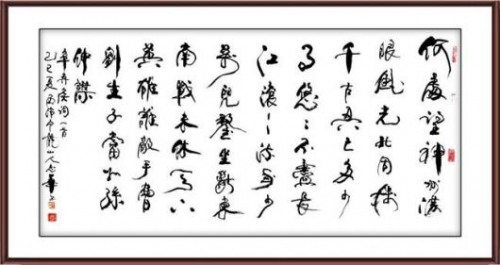 何處望神州滿
眼風光北固樓
千古興亡多少
事悠悠不盡長
江滾滾流年少
萬兜鍪坐斷東
南戰未休天下
英雄誰敵手曹
劉生子當如孫
仲謀
辛弃疾词一首